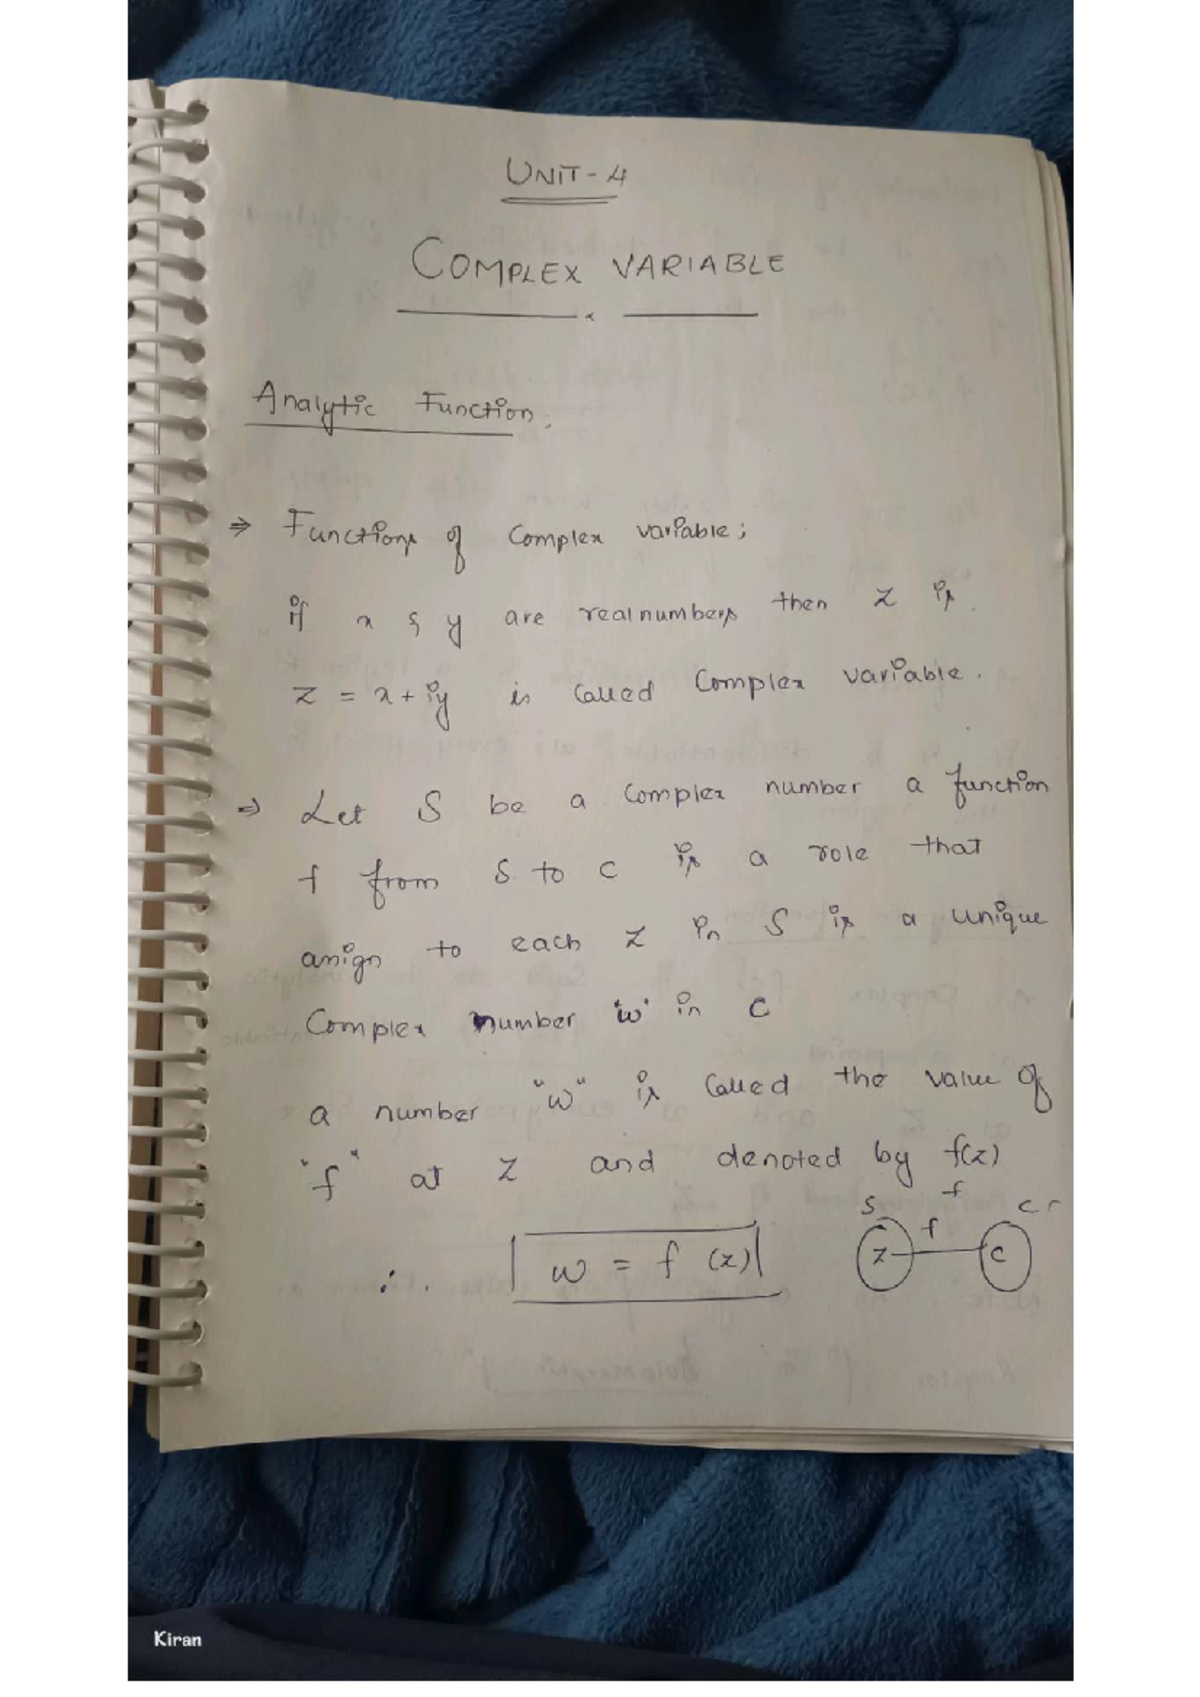 UNIT-4
COMPLEX VARIABLE
Analytic Function;
⇒ Functions of Complex variable;
if x & y are real numbers then z is
z = x + iy is called Complex variable.
⇒ Let S be a Complex number a function
f from S to C is a role that
assign to each z in S is a unique
Complex number 'w' in C
a number "w" is called the value of
"f" at z and denoted by f(z)
f
S f C
∴ w = f (z) z C
Kiran